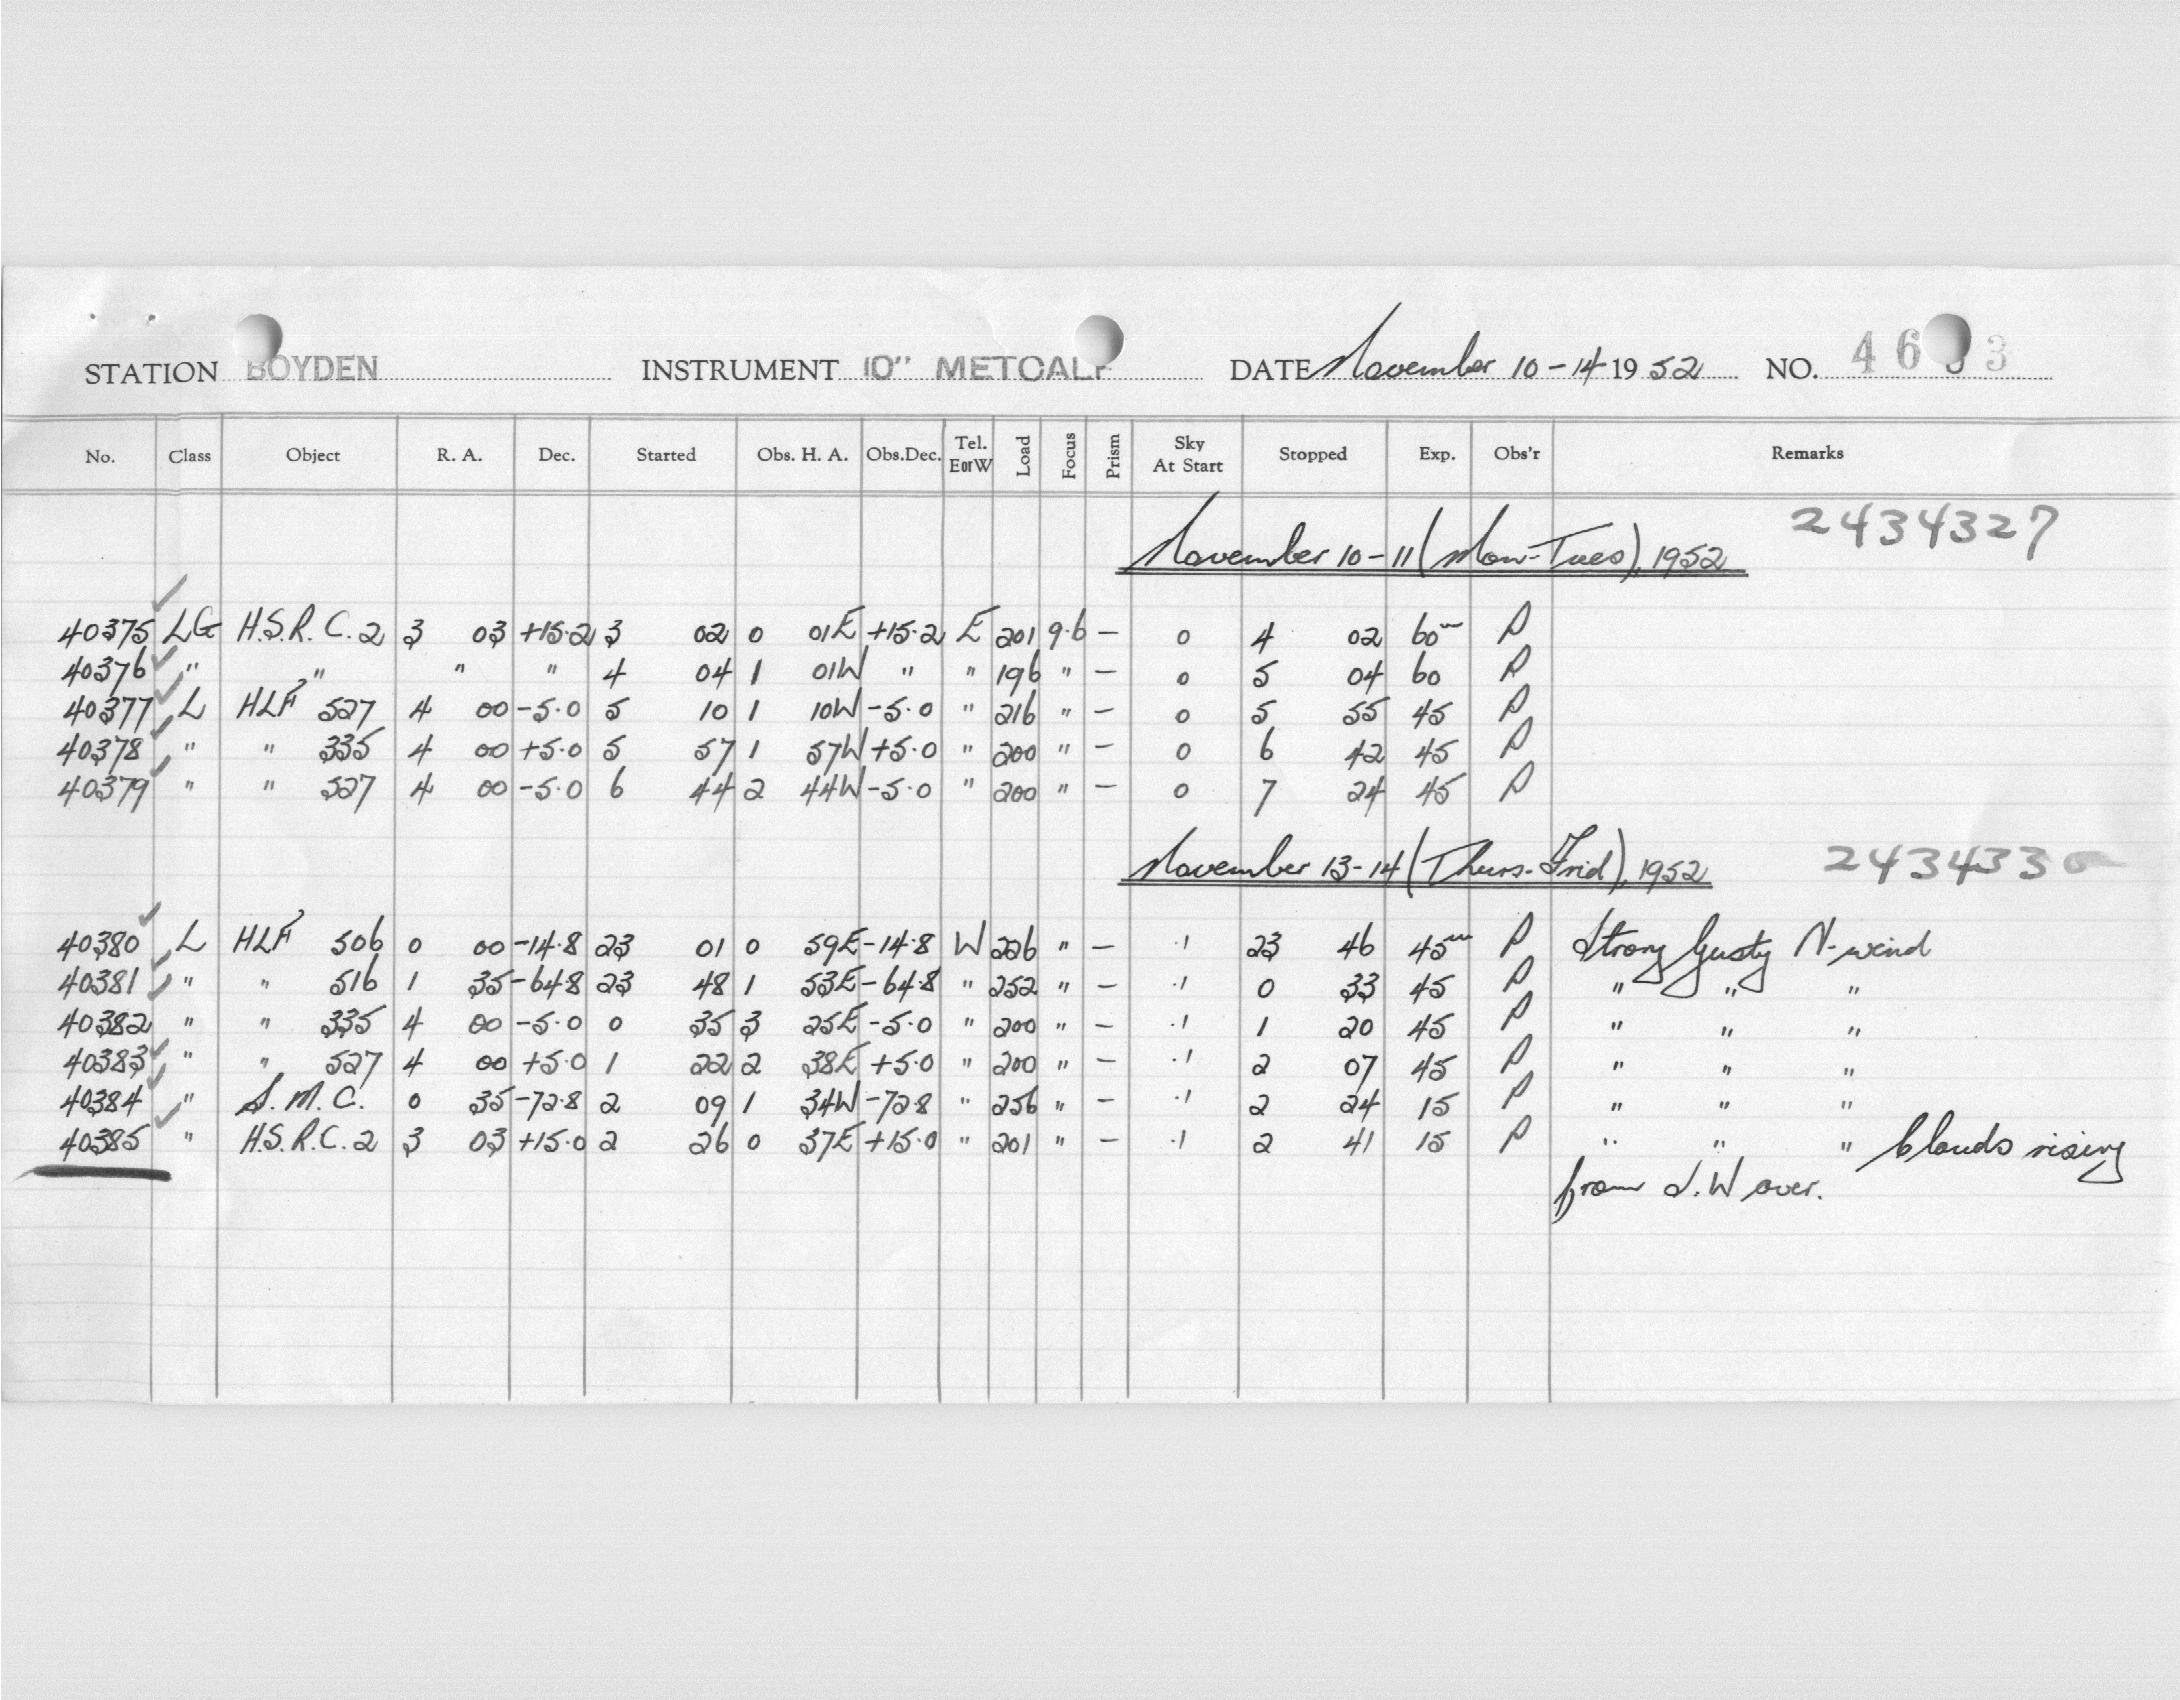 STATION BOYDEN INSTRUMENT 10" METCALF DATE November 10-14 1952 NO. 46 3
No. Class Object R. A. Dec. Started Obs. H. A. Obs.Dec. Tel. E or W Load Focus Prism Sky At Start Stopped Exp. Obs'r Remarks
November 10-11 (Mon-Tues), 1952 2434327
40375 LG H.S.R.C. 2 3 03 +15.2 3 02 0 01E +15.2 E 201 9.6 — 0 4 02 60m P
40376 " " " " 4 04 1 01W " " 196 " — 0 5 04 60 P
40377 L HLF 527 4 00 -5.0 5 10 1 10W -5.0 " 216 " — 0 5 55 45 P
40378 " " 335 4 00 +5.0 5 57 1 57W +5.0 " 200 " — 0 6 42 45 P
40379 " " 527 4 00 -5.0 6 44 2 44W -5.0 " 200 " — 0 7 24 45 P
November 13-14 (Thurs-Frid), 1952 2434330
40380 L HLF 506 0 00 -14.8 23 01 0 59E -14.8 W 226 " — .1 23 46 45m P Strong Gusty N-wind
40381 " " 516 1 35 -64.8 23 48 1 53E -64.8 " 252 " — .1 0 33 45 P " " "
40382 " " 335 4 00 -5.0 0 35 3 25E -5.0 " 200 " — .1 1 20 45 P " " "
40383 " " 527 4 00 +5.0 1 22 2 38E +5.0 " 200 " — .1 2 07 45 P " " "
40384 " S.M.C. 0 35 -72.8 2 09 1 34W -72.8 " 256 " — .1 2 24 15 P " " "
40385 " H.S.R.C. 2 3 03 +15.0 2 26 0 37E +15.0 " 201 " — .1 2 41 15 P " " " Clouds rising
from S.W over.